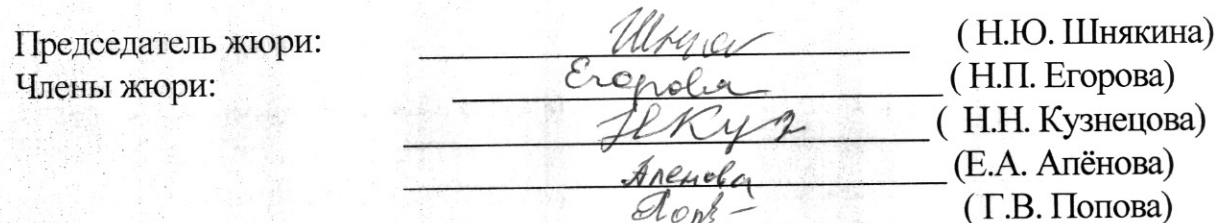 Председатель жюри: Шняк (Н.Ю. Шнякина)
Члены жюри: Егорова (Н.П. Егорова)
НКуз (Н.Н. Кузнецова)
Апенова (Е.А. Апёнова)
(Г.В. Попова)